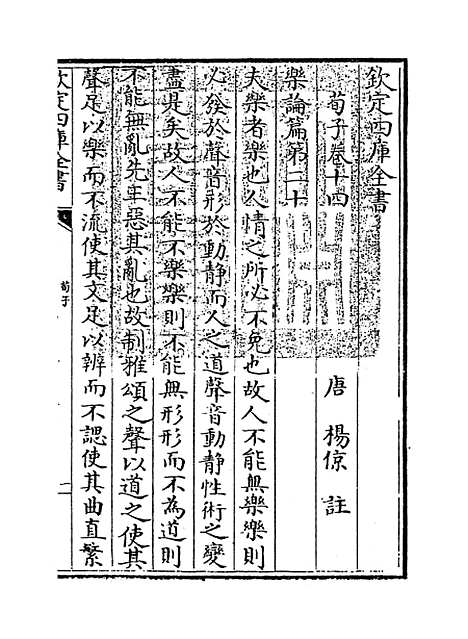 欽定四庫全書
荀子卷十四
唐 楊倞 註
樂論篇第二十
夫樂者樂也人情之所必不免也故人不能無樂樂則
必發於聲音形於動靜而人之道聲音動靜性術之變
盡是矣故人不能不樂樂則不能無形形而不為道則
不能無亂先王惡其亂也故制雅頌之聲以道之使其
聲足以樂而不流使其文足以辨而不諰使其曲直繁
欽定四庫全書
荀子